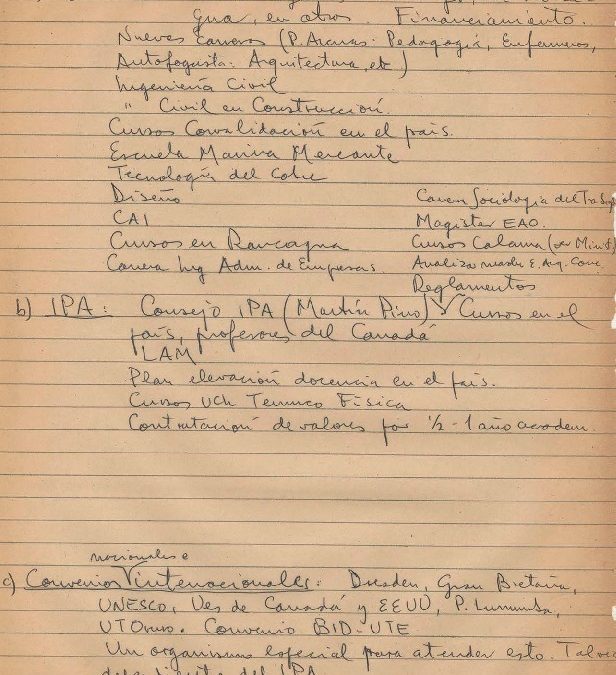 gua, en otros. Financiamiento.
Nuevas Carreras (P. Arenas: Pedagogía, Enfermeros,
Antofagasta: Arquitectura, etc)
Ingeniería Civil
" Civil en Construcción.
Cursos Convalidación en el país.
Escuela Marina Mercante
Tecnología del Cobre
Diseño Carrera Sociología del Trabajo
CAI Magister EAO.
Cursos en Rancagua Cursos Calama (ver Mint)
Carrera Ing Adm. de Empresas. Analizar E. Arq. Conc
Reglamentos
b) IPA: Consejo IPA (Martín Pino) Cursos en el
país, profesores del Canadá
LAM
Plan elevación docencia en el país.
Cursos UCh Temuco Física
Contratación de valores por 1/2 - 1 año academ.
nacionales e
c) Convenios internacionales: Dresden, Gran Bretaña,
UNESCO, Ues de Canadá y EEUU, P. Lumumba,
UTOruro. Convenio BID-UTE
Un organismo especial para atender esto. Talvez
del IPA